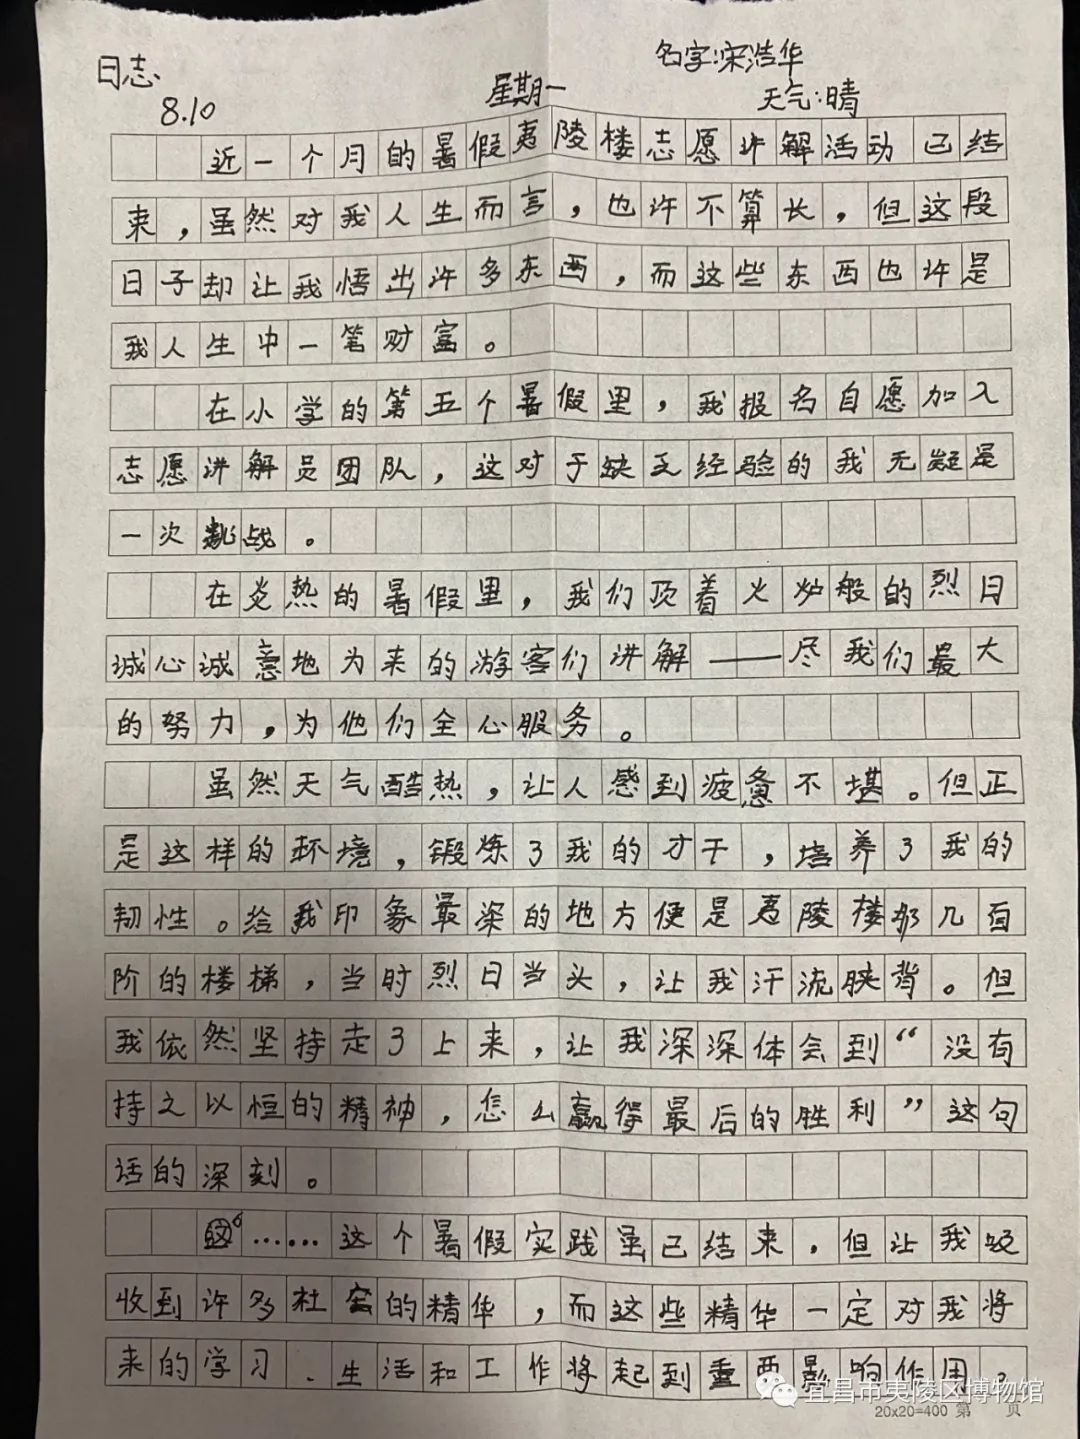 名字:宋浩华
日志
8.10 星期一 天气:晴
近一个月的暑假夷陵楼志愿讲解活动已结
束，虽然对我人生而言，也许不算长，但这段
日子却让我悟出许多东西，而这些东西也许是
我人生中一笔财富。
在小学的第五个暑假里，我报名自愿加入
志愿讲解员团队，这对于缺乏经验的我无疑是
一次挑战。
在炎热的暑假里，我们顶着火炉般的烈日
诚心诚意地为来的游客们讲解——尽我们最大
的努力，为他们全心服务。
虽然天气酷热，让人感到疲惫不堪。但正
是这样的环境，锻炼了我的才干，培养了我的
韧性。给我印象最深的地方便是夷陵楼那几百
阶的楼梯，当时烈日当头，让我汗流浃背。但
我依然坚持走了上来，让我深深体会到“没有
持之以恒的精神，怎么赢得最后的胜利”这句
话的深刻。
……这个暑假实践虽已结束，但让我吸
收到许多社会的精华，而这些精华一定对我将
来的学习、生活和工作将起到重要影响作用。
宜昌市夷陵区博物馆
20x20=400 第 页